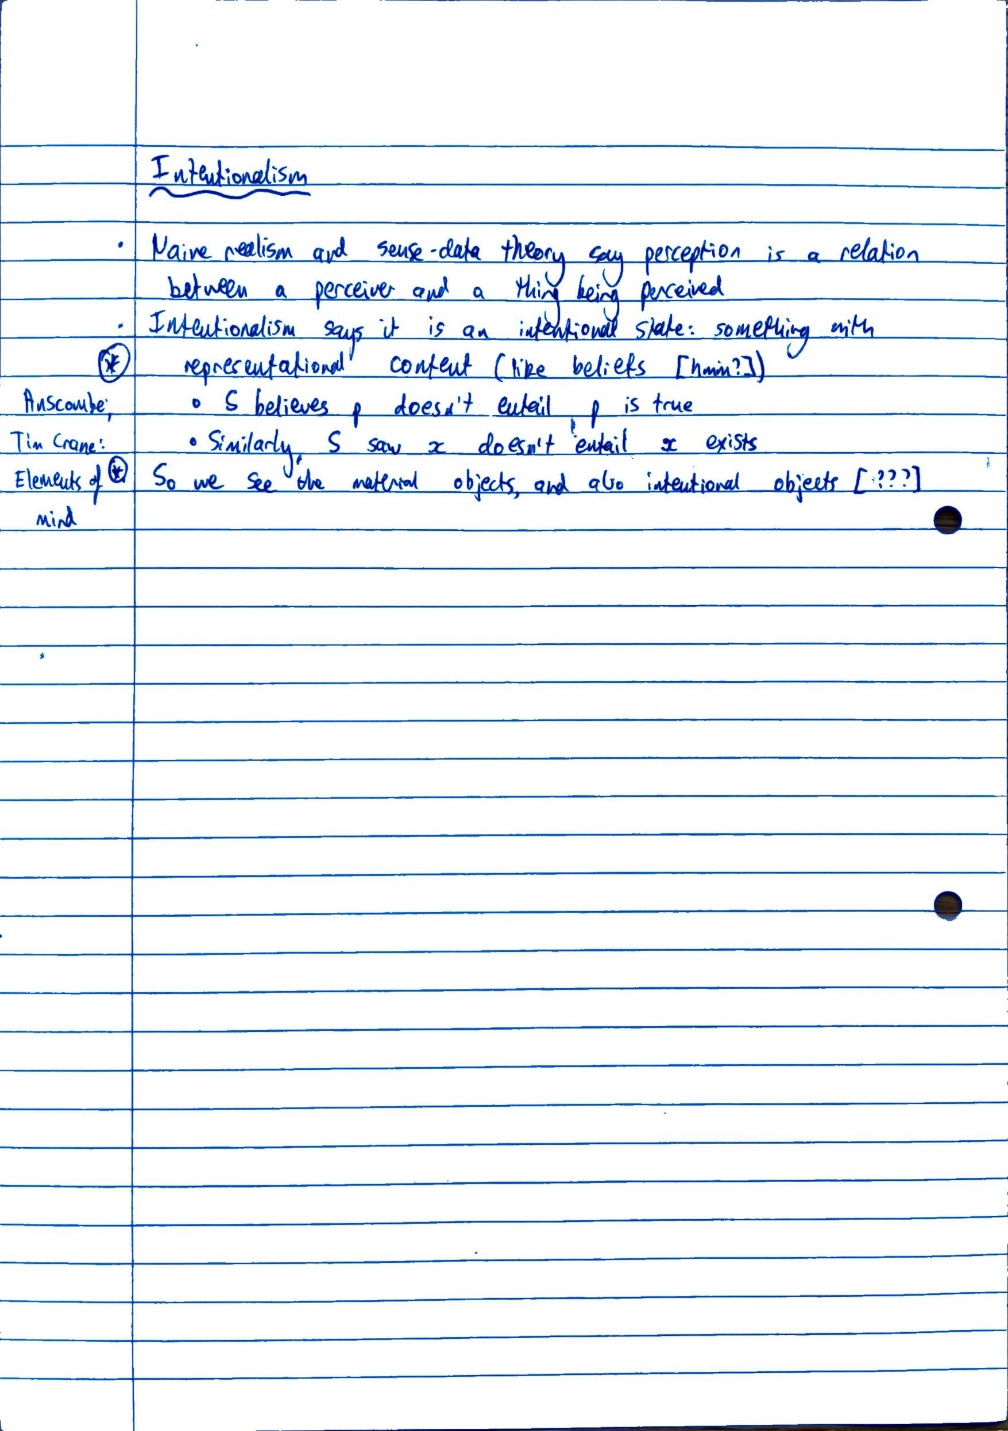 Intentionalism
• Naive realism and sense-data theory say perception is a relation
between a perceiver and a thing being perceived
• Intentionalism says it is an intentional state: something with
* representational content (like beliefs [hmm?])
Anscombe;
◦ S believes p doesn't entail p is true
Tim Crane:
• Similarly, S saw x doesn't entail x exists
Elements of
* So we see the material objects, and also intentional objects [???]
mind